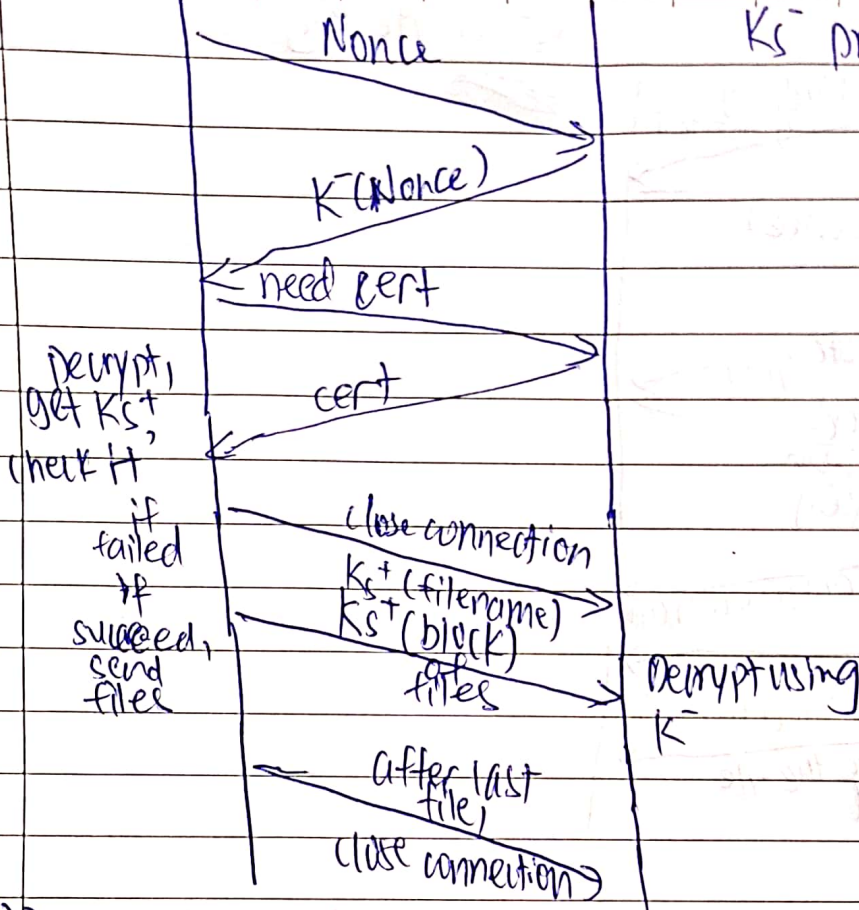 Nonce
Ks⁻ pr
K⁻(Nonce)
need cert
Decrypt,
get Ks⁺,
check it
cert
if
failed
close connection
if
succeed,
send
files
Ks⁺(filename)
Ks⁺(block)
of
files
Decrypt using
K⁻
after last
file,
close connection